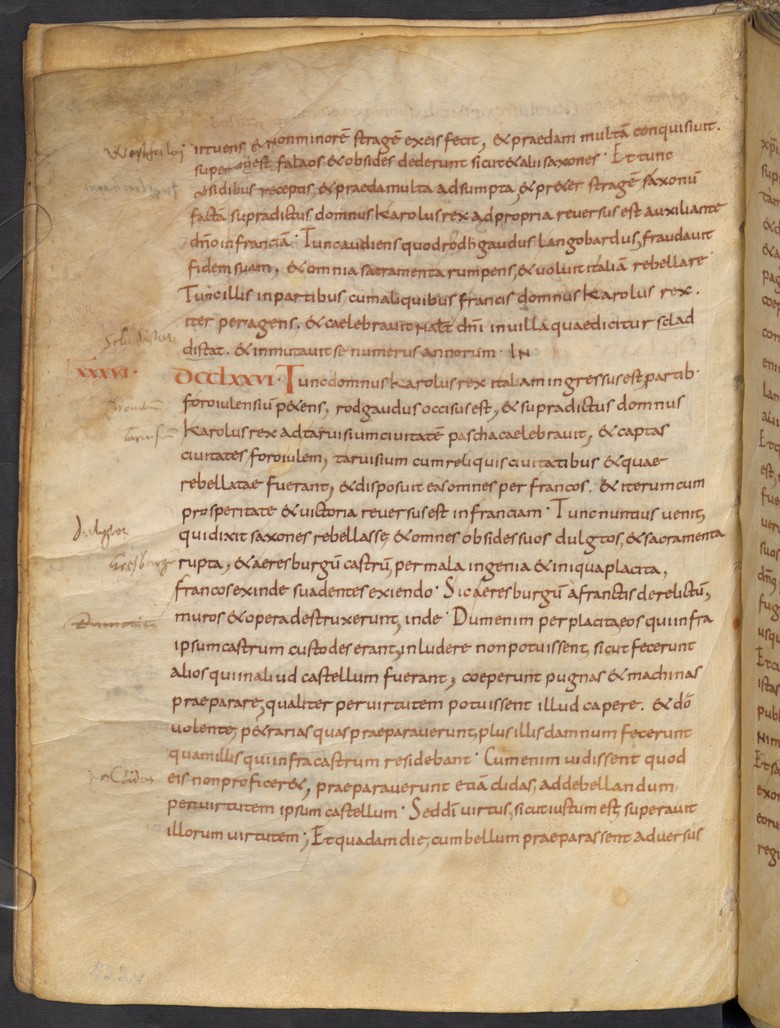 irruens, & non minorē stragē ex eis fecit, & praedam multā conquisiuit.
super uuestfalaos & obsides dederunt sicut & alii saxones · Et tunc
obsidibus receptis, & praeda multa adsumpta, & p ter stragē saxonū
factā supradictus domnus karolus rex ad propria reuersus est auxiliante
dn̄o in franciā · Tunc audiens quod rodhgaudus langobardus, fraudauit
fidem suam, & omnia sacramenta rumpens, & uoluit italiā rebellare
Tunc illis in partibus cum aliquibus francis domnus karolus rex.
iter peragens. & caelebrauit nat dn̄i in uilla quae dicitur sclad
distat. & inmutauit se numerus annorum · IN
xxxvi. DCCLXXVI · Tunc domnus karolus rex italiam ingressus est partib·
foroiulensiū p gens, rodgaudus occisus est, & supradictus domnus
karolus rex ad taruisium ciuitatē pascha caelebrauit, & captas
ciuitates foroiulem, taruisium cum reliquis ciuitatibus & quae
rebellatae fuerant, & disposuit eas omnes per francos. & iterum cum
prosperitate & uictoria reuersus est in franciam · Tunc nuntius uenit,
qui dixit saxones rebellasse & omnes obsides suos dulgtos, & sacramenta
rupta, & aeresburgū castrū, per mala ingenia & iniqua placita,
francos exinde suadentes exiendo · Sic aeresburgū a francis derelictū,
muros & opera destruxerunt, inde · Dum enim per placita eos qui infra
ipsum castrum custodes erant, inludere non potuissent, sicut fecerunt
alios qui in aliud castellum fuerant, coeperunt pugnas & machinas
praeparare, qualiter per uirtutem potuissent illud capere. & dō
uolente, p&rarias quas praeparauerunt, plus illis damnum fecerunt
quam illis qui infra castrum residebant · Cum enim uidissent quod
eis non proficer&, praeparauerunt etiā clidas, ad debellandum
per uirtutem ipsum castellum · Sed dī uirtus, sicut iustum est, superauit
illorum uirtutem; Et quadam die, cum bellum praeparassent aduersus
Clidas